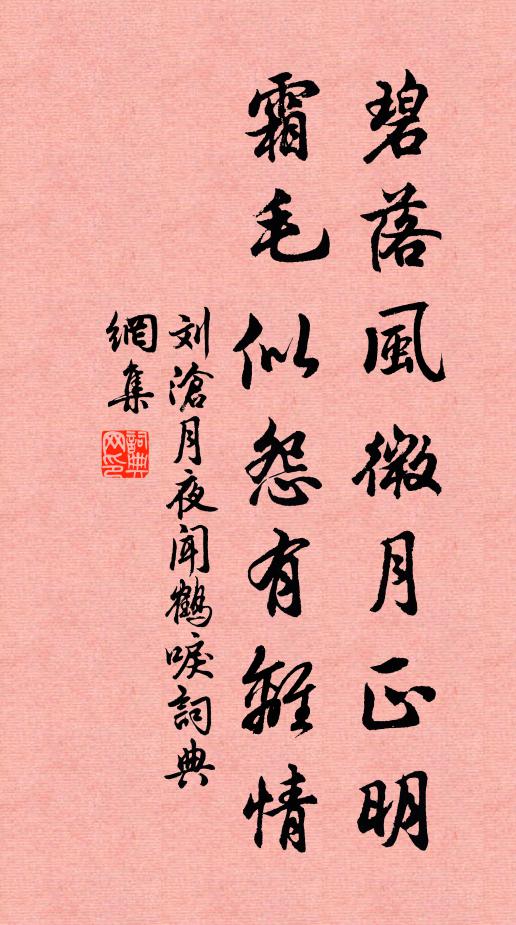 碧落風微月正明
霜毛似怨有離情
刘滄月夜聞鶴唳詞典
網集
詞典
网印